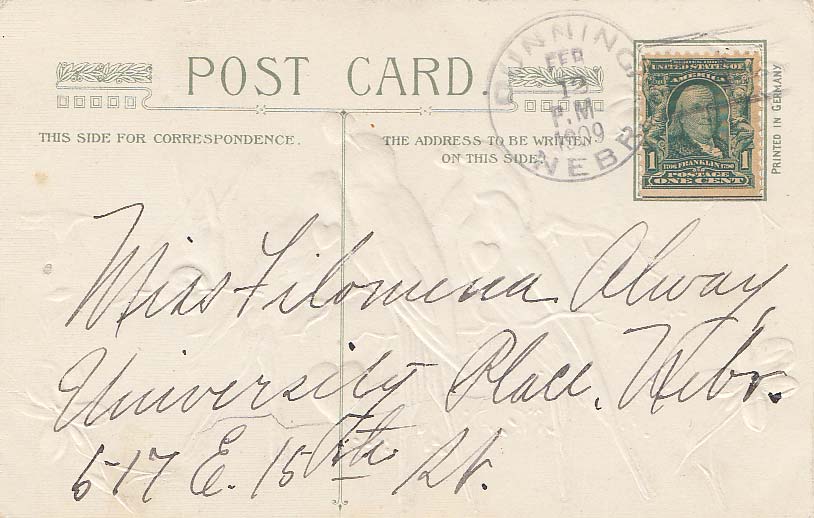 POST CARD.
THIS SIDE FOR CORRESPONDENCE.
THE ADDRESS TO BE WRITTEN
ON THIS SIDE.
DUNNING
FEB
12
P.M.
1909
NEBR.
SERIES 1902
UNITED STATES OF
AMERICA
1 1706 FRANKLIN 1790 1
POSTAGE
ONE CENT
PRINTED IN GERMANY
Miss Filomena Alway,
University Place, Nebr.
517 E. 15th St.